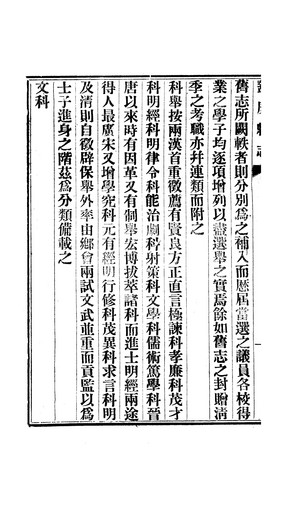 舊志所闕軼者則分別為之補入而歷屆當選之議員各校得
業之學子均逐項增列以盡選舉之實焉餘如舊志之封贈清
季之考職亦幷連類而附之
科舉按兩漢首重徵薦有賢良方正直言極諫科孝廉科茂才
科明經科明律令科能治劇科射策科文學科儒術篤學科晉
唐以來時有因革又有制舉宏博拔萃諸科而進士明經兩途
得人最廣宋又增學究科元有經明行修科茂異科求言科明
及清則自徵辟保舉外率由鄉會兩試文武並重而貢監以為
士子進身之階茲為分類備載之
文科